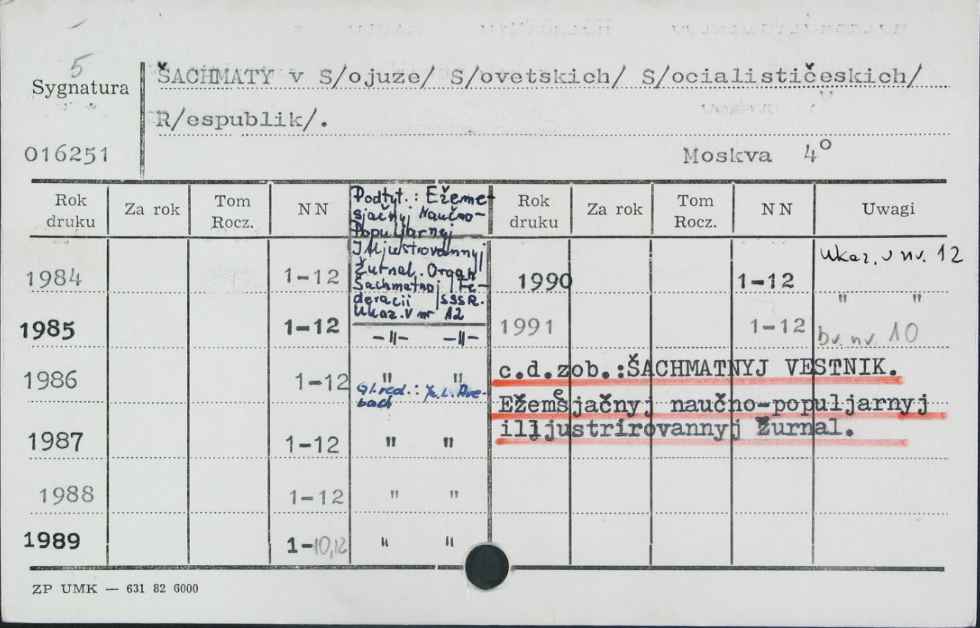 5
Sygnatura
016251
ŠACHMATY v S/ojuze/ S/ovetskich/ S/ocialističeskich/
R/espublik/.
Moskva 4°
Rok druku Za rok Tom Rocz. NN
Podtyt.: Ežeme-
sjačnyj Naučno-
Populjarnej
Illjustrovannyj
Žurnal. Organ
Šachmatnoj Fe-
deracii SSSR.
Ukaz. v nr 12
Rok druku Za rok Tom Rocz. NN Uwagi
1984 1-12
1985 1-12 -"- -"-
1986 1-12 " "
Gl. red.: Ju. L. Aver-
bach
1987 1-12 " "
1988 1-12 " "
1989 1-10,12 " "
1990 1-12 Ukaz. v nr. 12
" "
1991 1-12 br. nr. 10
c.d.zob.:ŠACHMATNYJ VESTNIK.
Ežemešjačnyj naučno-populjarnyj
illjustrirovannyj žurnal.
ZP UMK — 631 82 6000